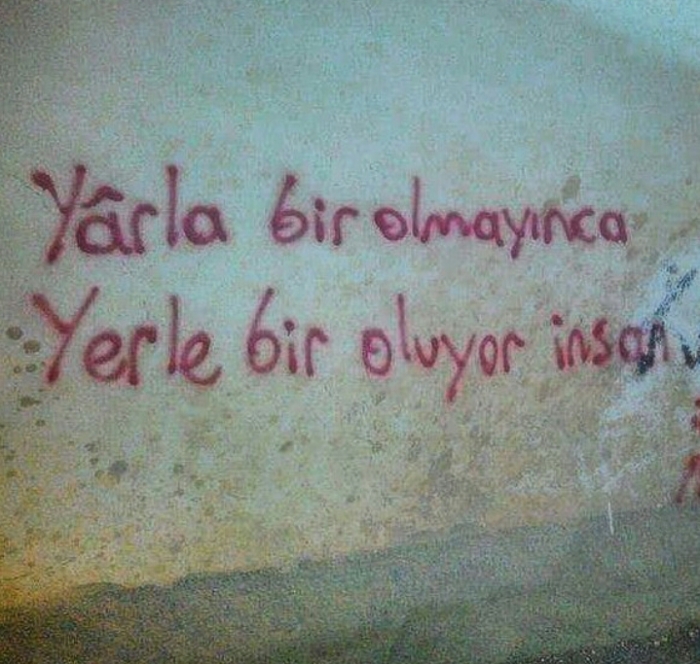 Yârla bir olmayınca
Yerle bir oluyor insan